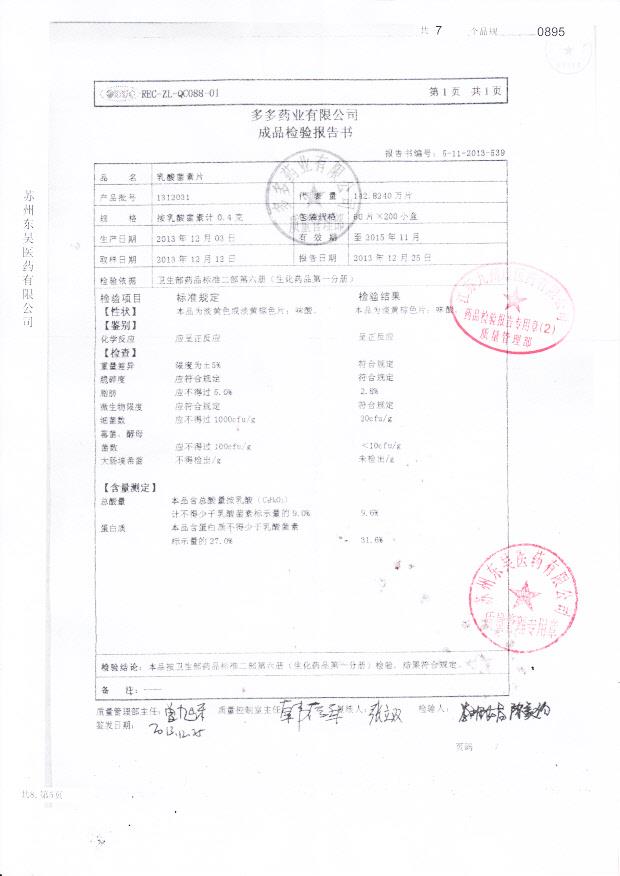 共 7 个品规 0895
REC-ZL-QC088-01 第1页 共1页
多多药业有限公司
成品检验报告书
报告书编号：5-11-2013-539
品 名 乳酸菌素片
产品批号 1312031 代表量 142.8240万片
规 格 按乳酸菌素计 0.4克 包装规格 60片×200小盒
生产日期 2013年12月03日 有效期 至2015年11月
取样日期 2013年12月12日 报告日期 2013年12月25日
检验依据 卫生部药品标准二部第六册（生化药品第一分册）
检验项目 标准规定 检验结果
【性状】 本品为淡黄色或淡黄棕色片；味酸。 本品为淡黄棕色片；味酸。
【鉴别】
化学反应 应呈正反应 呈正反应
【检查】
重量差异 限度为±5% 符合规定
脆碎度 应符合规定 符合规定
脂肪 应不得过5.0% 2.8%
微生物限度 应符合规定 符合规定
细菌数 应不得过1000cfu/g 20cfu/g
霉菌、酵母
菌数 应不得过100cfu/g <10cfu/g
大肠埃希菌 不得检出/g 未检出/g
【含量测定】
总酸量 本品含总酸量按乳酸（C₃H₆O₃）
计不得少于乳酸菌素标示量的9.0% 9.6%
蛋白质 本品含蛋白质不得少于乳酸菌素
标示量的27.0% 31.6%
检验结论：本品按卫生部药品标准二部第六册（生化药品第一分册）检验，结果符合规定。
备 注：——
质量管理部主任： 质量控制室主任： 复核人： 检验人：
签发日期： 2013.12.25
页码 /
苏州东吴医药有限公司
共8，第5页
多多药业有限公司
质量管理部
药品检验报告专用章(2)
质量管理部
苏州东吴医药有限公司
质量管理专用章